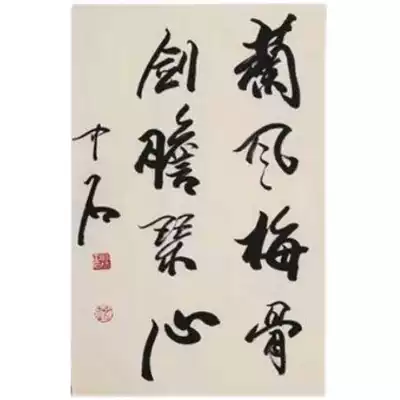 蘭风梅骨
剑膽琴心
中石